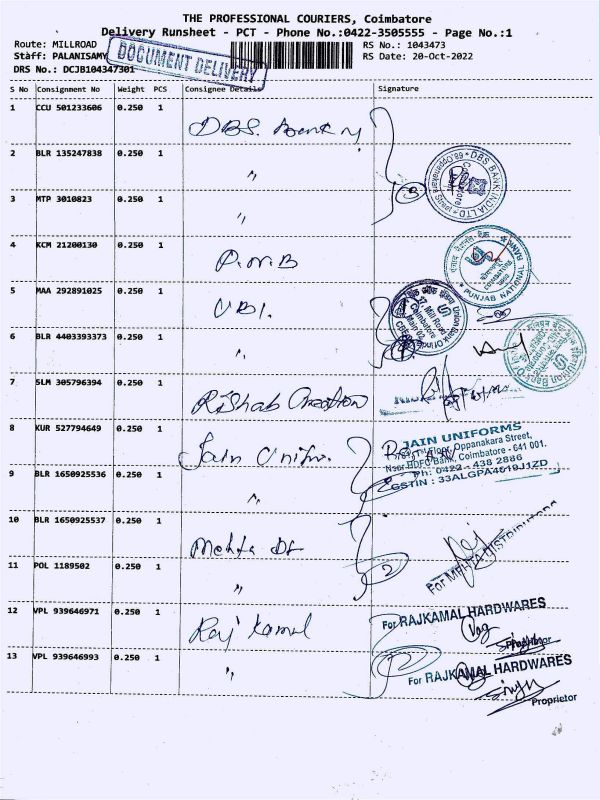 THE PROFESSIONAL COURIERS, Coimbatore
Delivery Runsheet - PCT - Phone No.:0422-3505555 - Page No.:1
Route: MILLROAD RS No.: 1043473
Staff: PALANISAMY RS Date: 20-Oct-2022
DRS No.: DCJB104347301
DOCUMENT DELIVERY
S No Consignment No Weight PCS Consignee Details Signature
1 CCU 501233606 0.250 1 DBS. Bank
2 BLR 135247838 0.250 1 "
DBS BANK INDIA LTD
3 MTP 3010823 0.250 1 " 3
4 KCM 21200130 0.250 1 P.N.B
PUNJAB NATIONAL BANK
5 MAA 292891025 0.250 1 UBI.
Union Bank Of India
17, Mill Road
Coimbatore
Main 02
6 BLR 4403393373 0.250 1 "
7 SLM 305796394 0.250 1 Rishab Creation
8 KUR 527794649 0.250 1 Jain Unifm.
JAIN UNIFORMS
Floor, Oppanakara Street,
Near HDFC Bank, Coimbatore - 641 001.
Ph: 0422 - 438 2886
GSTIN : 33ALGPA4619J1ZD
9 BLR 1650925536 0.250 1 "
10 BLR 1650925537 0.250 1 Mehta Dt
11 POL 1189502 0.250 1 " 2
For MEHTA DISTRIBUTORS
12 VPL 939646971 0.250 1 Raj Kamal
For RAJKAMAL HARDWARES
Proprietor
13 VPL 939646993 0.250 1 " 2
For RAJKAMAL HARDWARES
Proprietor